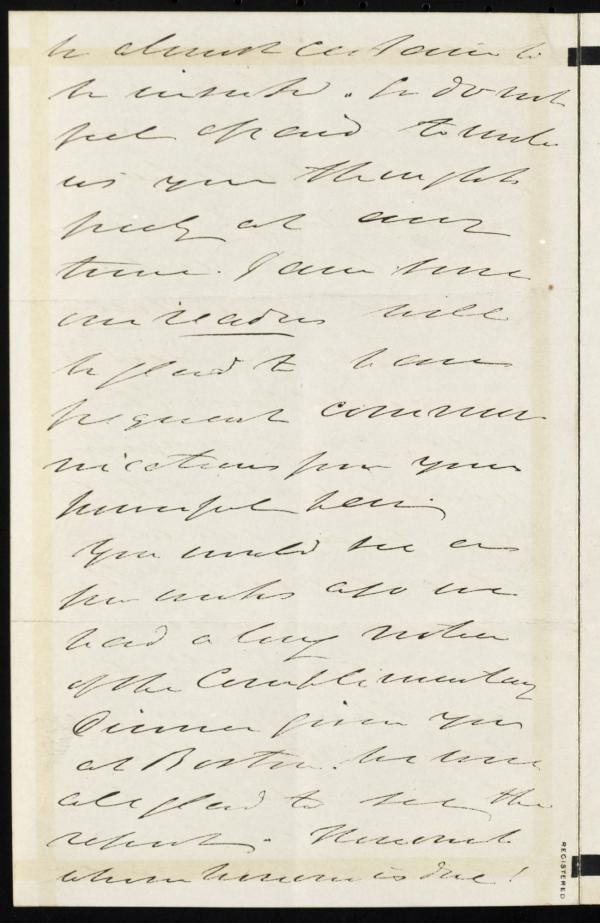 be almost certain to
be inserted. So do not
feel afraid to write
us your thoughts
freely at any
time. I am sure
our readers will
be glad to have
frequent commu-
nications from your
powerful pen.
You would see a
few weeks ago we
had a long notice
of the Complimentary
Dinner given you
at Boston. We were
all glad to see the
report. Honour to
whom honour is due!
REGISTERED